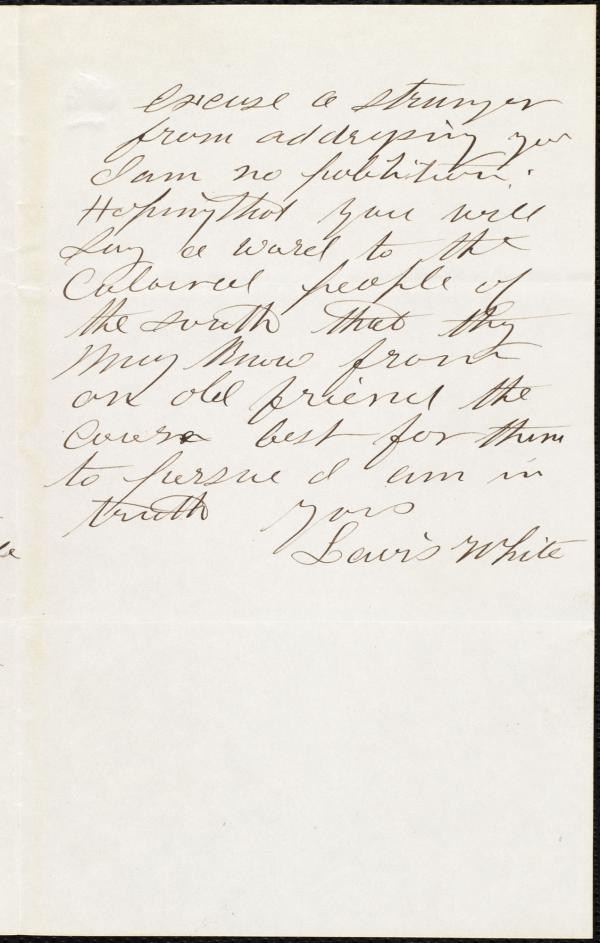 excuse a stranger
from addressing you
I am no polititian.
Hoping that you will
say a word to the
Coloured people of
the south that thy
may know from
an old friend the
course best for them
to pursue I am in
truth yors
Lewis White